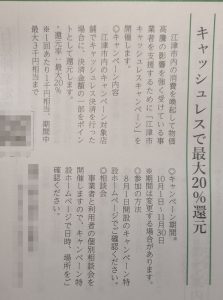 キャッシュレスで最大20%還元
江津市内の消費を喚起して物価
高騰の影響を強く受けている事
業者を支援するために「江津市
キャッシュレスキャンペーン」を
開催します。
◎キャンペーン内容
江津市内のキャンペーン対象店
舗でキャッシュレス決済を行った
場合に、決済金額の一部をポイン
トとして還元します。
・還元率 最大20%
※1回あたり1千円相当、期間中
最大3千円相当まで
◎キャンペーン期間※
10月1日~11月30日
※期間は変更する場合があります。
◎参加の方法
8月1日開設のキャンペーン特
設ホームページでご確認ください。
◎相談会
事業者と利用者の個別相談会を
開催しますので、キャンペーン特
設ホームページで日時、場所をご
確認ください。